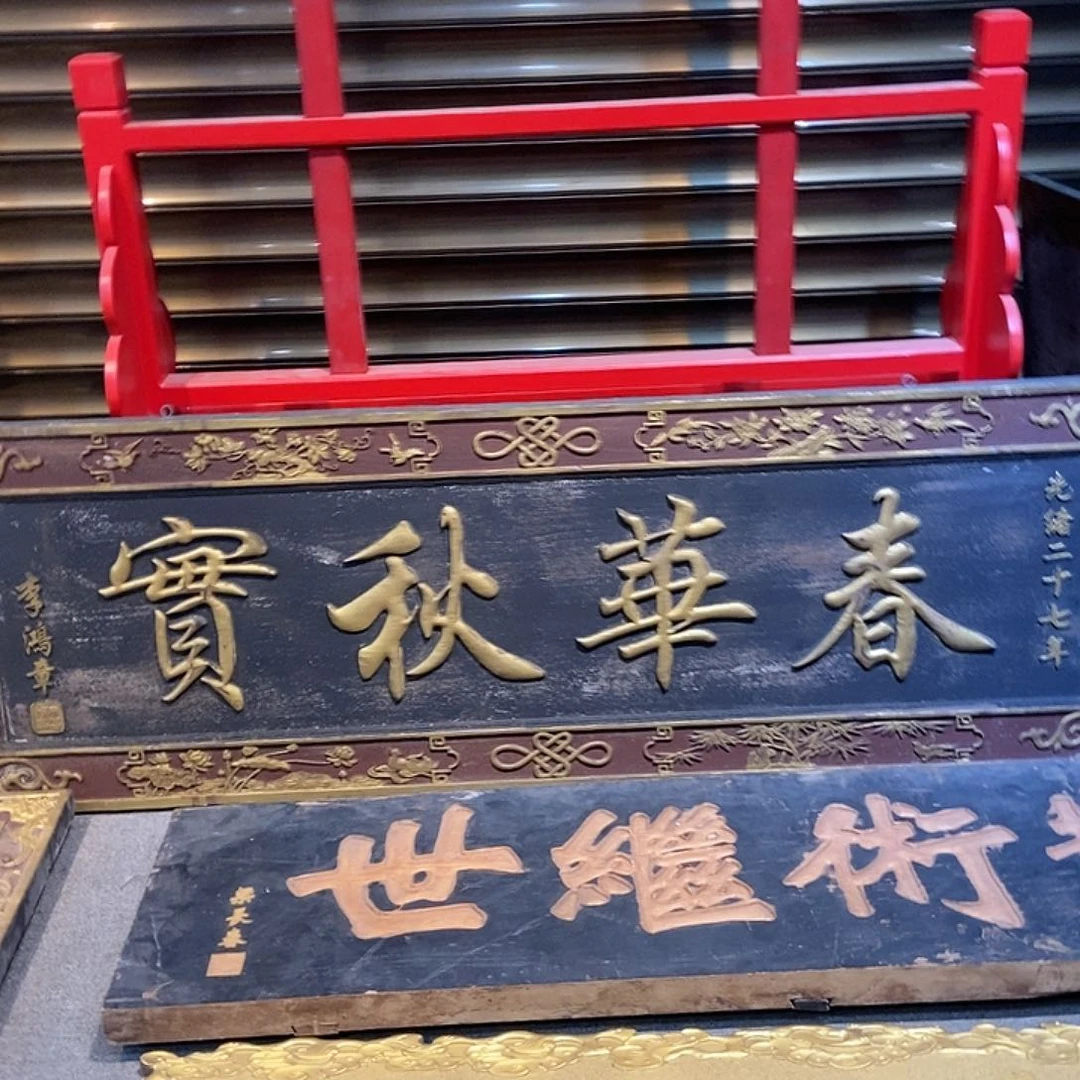 光緒二十七年
春華秋實
李鴻章
術繼世